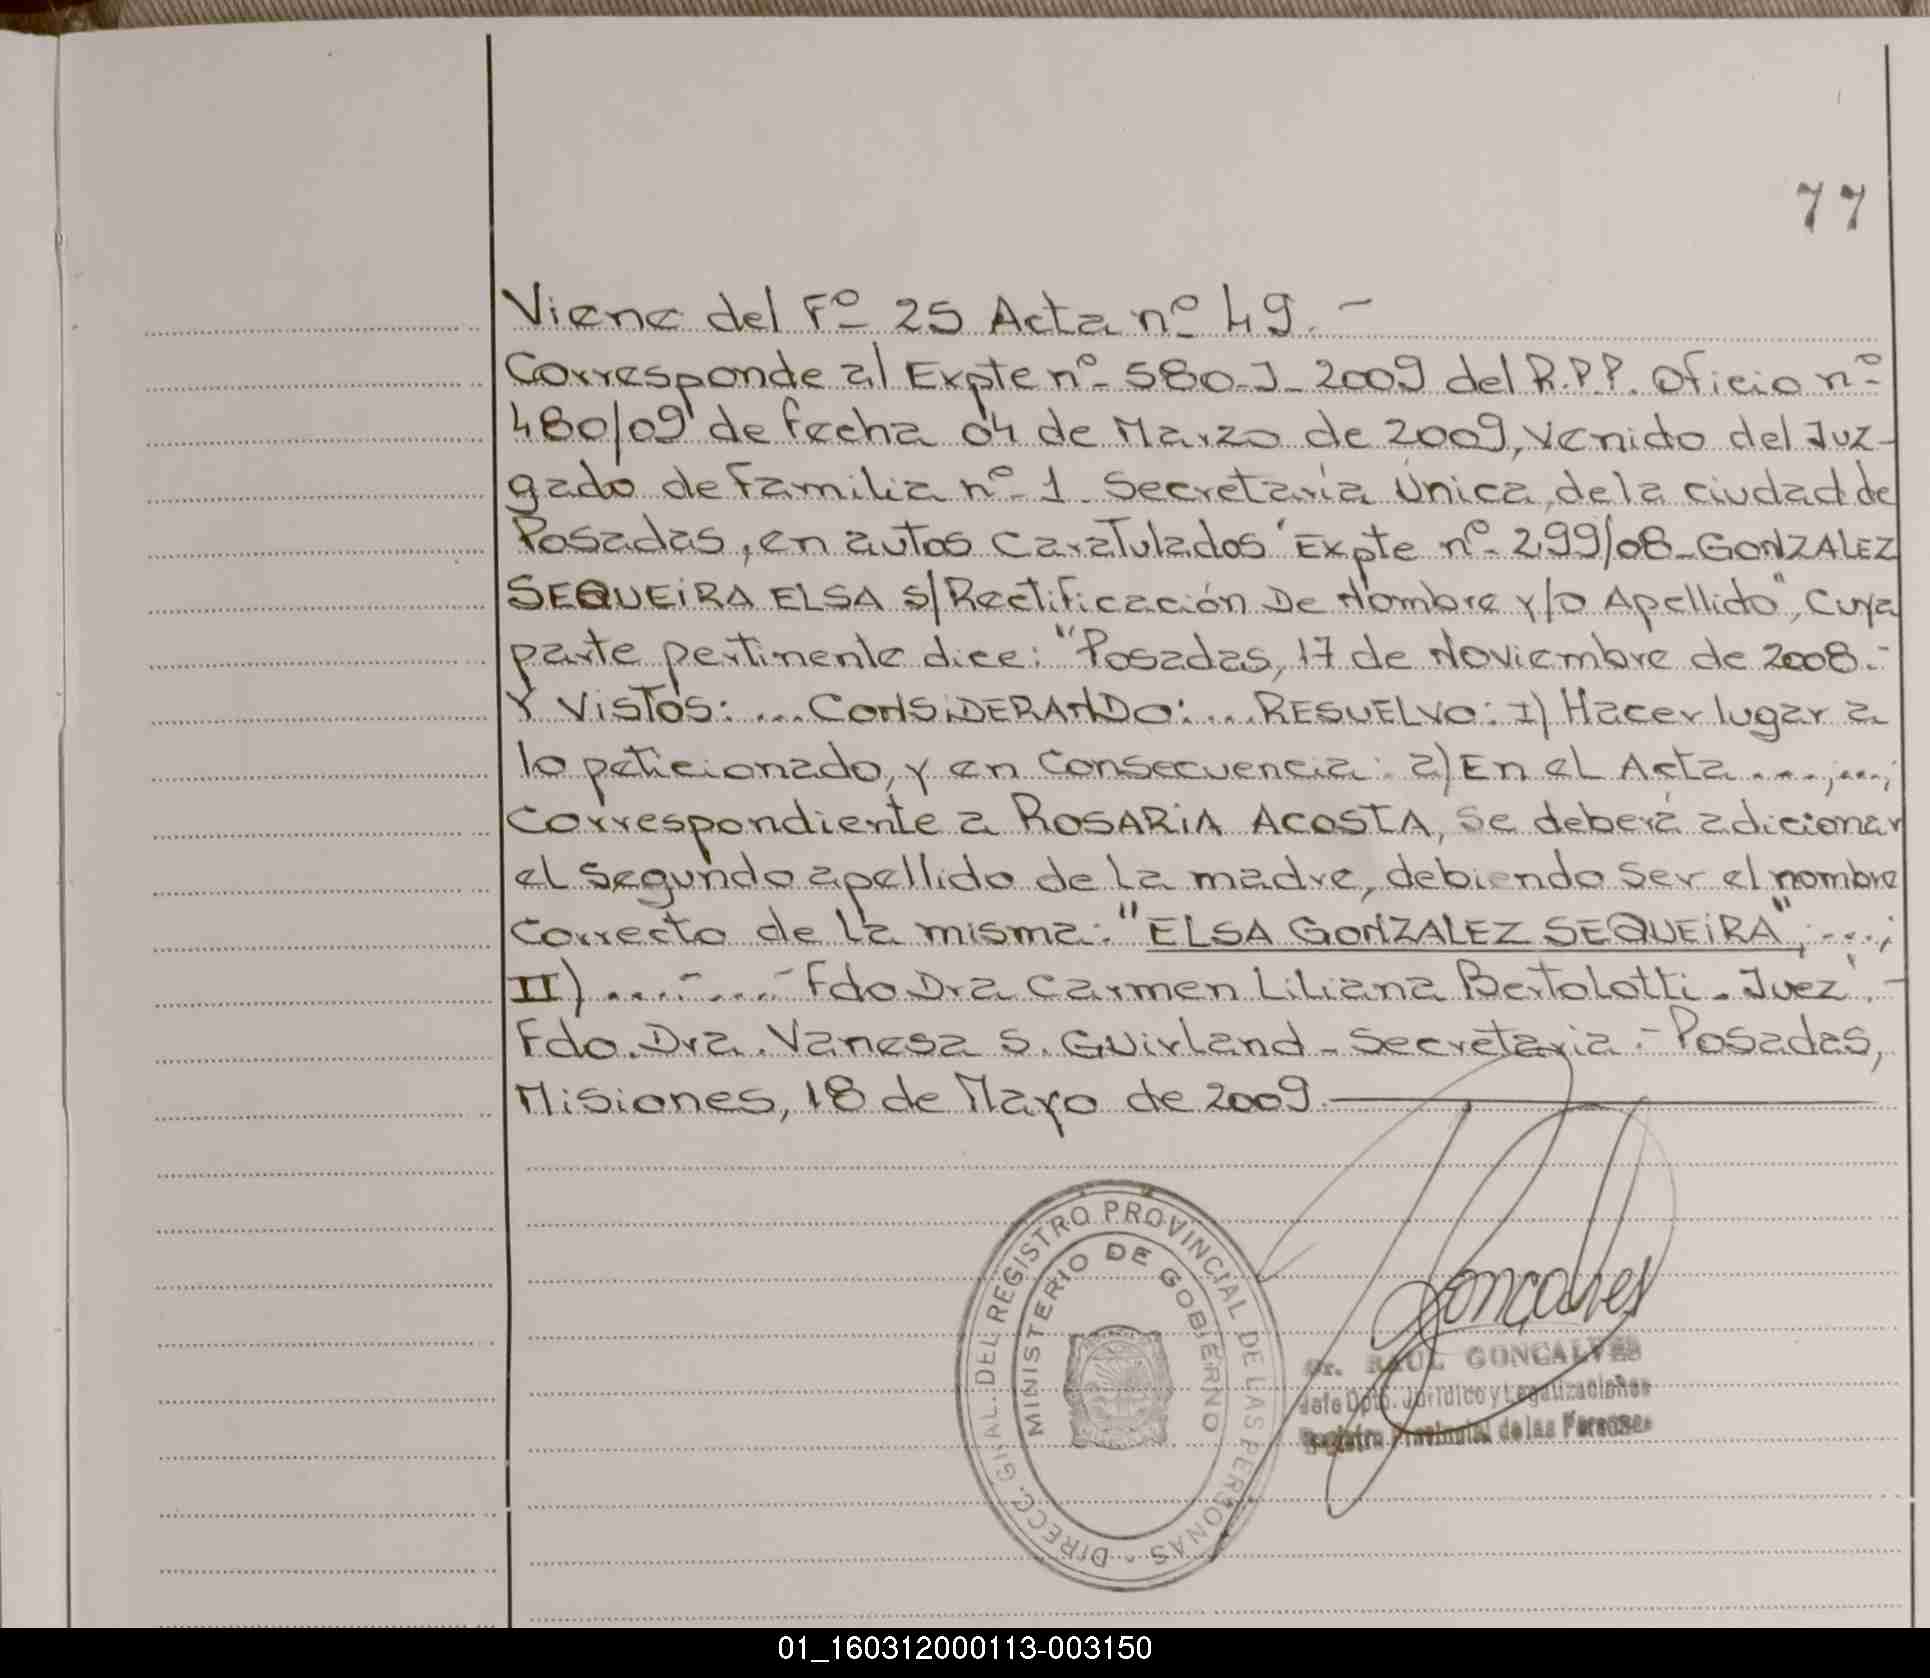 77
Viene del Fº 25 Acta nº 49.-
Corresponde al Expte nº 580-J-2009 del R.P.P. Oficio nº
480/09 de fecha 04 de Marzo de 2009, venido del Juz-
gado de Familia nº 1. Secretaría Única, de la ciudad de
Posadas, en autos Caratulados "Expte nº 299/08-GONZALEZ
SEQUEIRA ELSA S/Rectificación De Nombre y/o Apellido", Cuya
parte pertinente dice: "Posadas, 17 de Noviembre de 2008.-
Y Vistos: ...CONSIDERANDO: ...RESUELVO: I) Hacer lugar a
lo peticionado, y en Consecuencia: a) En el Acta ....,...;
Correspondiente a ROSARIA ACOSTA, Se deberá adicionar
el Segundo apellido de la madre, debiendo Ser el nombre
Correcto de la misma: "ELSA GONZALEZ SEQUEIRA", ...;
II) ....-....- Fdo Dra Carmen Liliana Bertolotti. Juez".-
Fdo. Dra. Vanesa S. Guirland - Secretaria.- Posadas,
Misiones, 18 de Mayo de 2009.
DIRECC. GRAL. DEL REGISTRO PROVINCIAL DE LAS PERSONAS
MINISTERIO DE GOBIERNO
Goncalves
Dr. RAUL GONCALVES
Jefe Dpto. Jurídico y Legalizaciones
Registro Provincial de las Personas
01_160312000113-003150